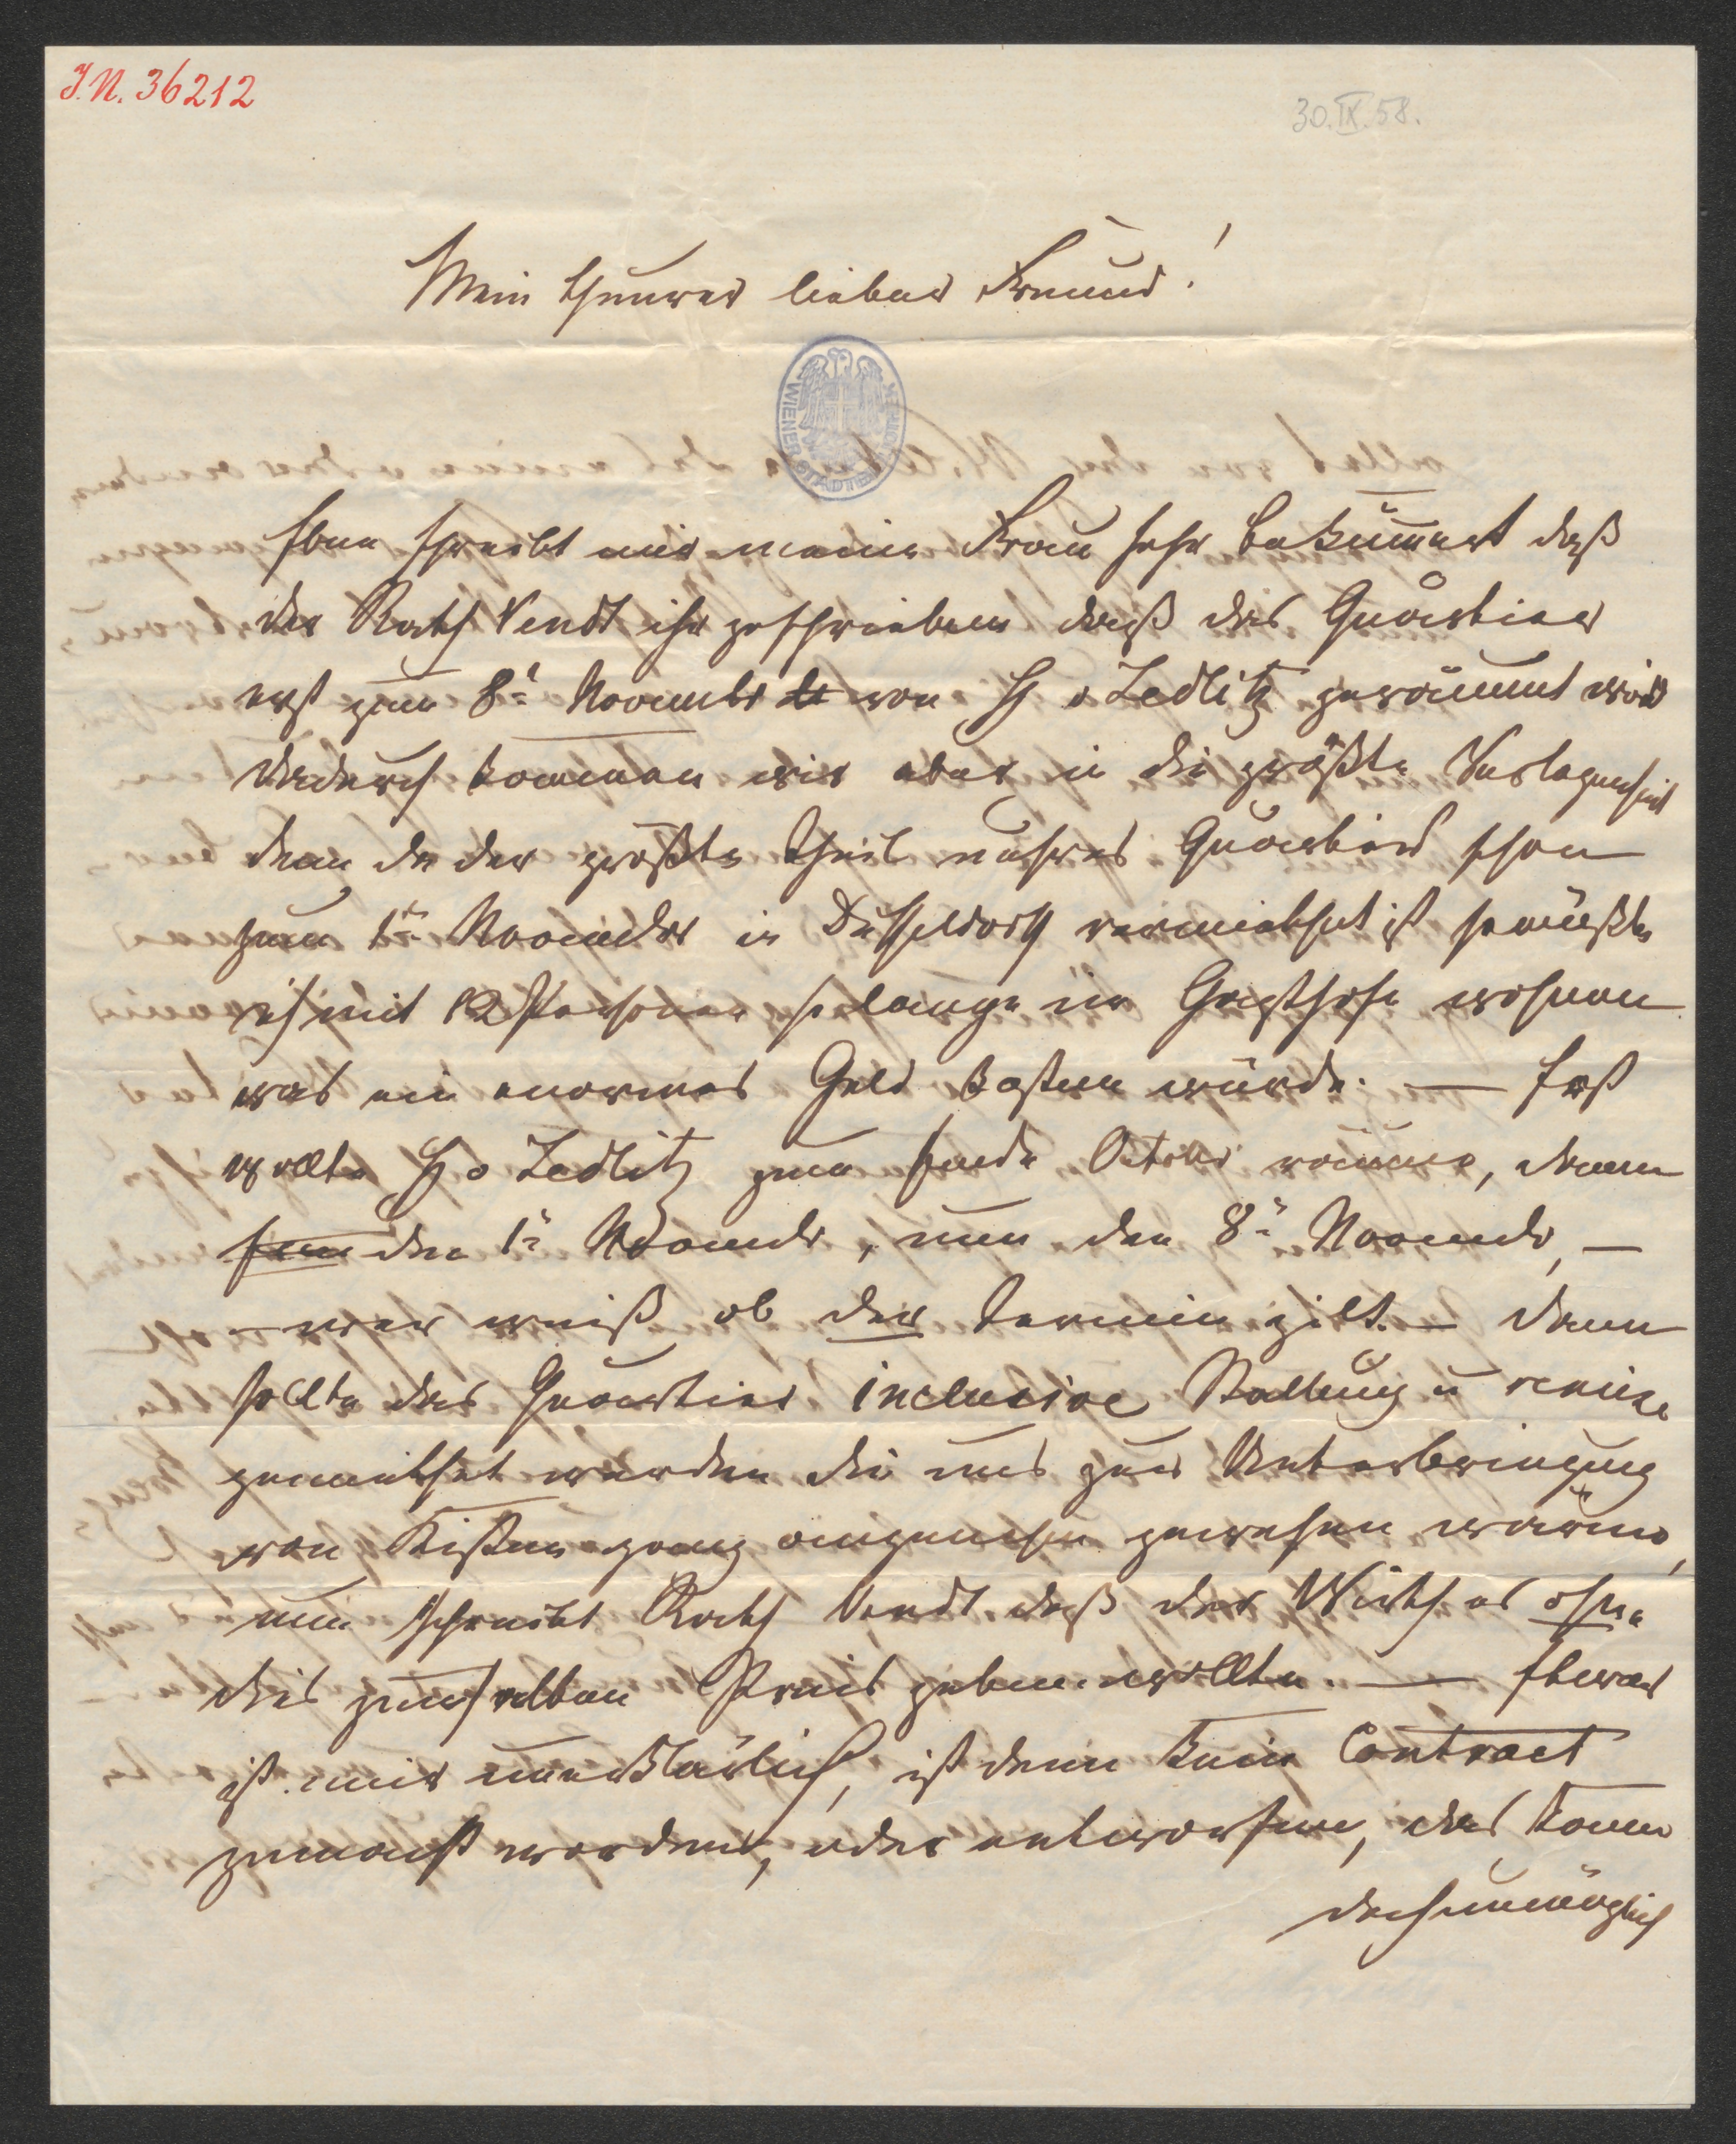 J. N. 36212
30. IX. 58.
Mein theurer lieber Freund!
WIENER STADTBIBLIOTHEK
Eben schreibt mir meine Frau sehr bekümmert daß
der Rath Vendt ihr geschrieben daß das Quartier
erst zum 8ᵗ November von H v Zedlitz geräumt wird
dadurch kommen wir aber in die größte Verlegenheit
denn da der größte Theil unsres Quartiers schon
zum 1ᵗ November in Düsseldorf vermiethet ist so müßte
ich mit 12 Personen so lange im Gasthofe wohnen
was ein enormes Geld kosten würde. — Erst
wollte H v Zedlitz zum Ende October räumen, dann
den 1ᵗ November, nun den 8ᵗ November, —
— wer weiß ob der Termin gilt. — Dann
sollte das Quartier inclusive Stallung u remise
gemiethet werden die uns zur Unterbringung
von Kisten ganz angenehm gewesen wären,
nun schreibt Rath Vendt daß der Wirth es ohne
dies zum selben Preis geben wollte. — Etwas
ist mir unerklärlich, ist denn kein Contract
gemacht worden, oder entworfen, das kann
doch unmöglich